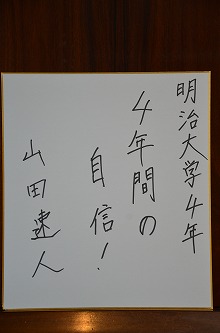 明治大学4年
4年間の
自信!
山田速人